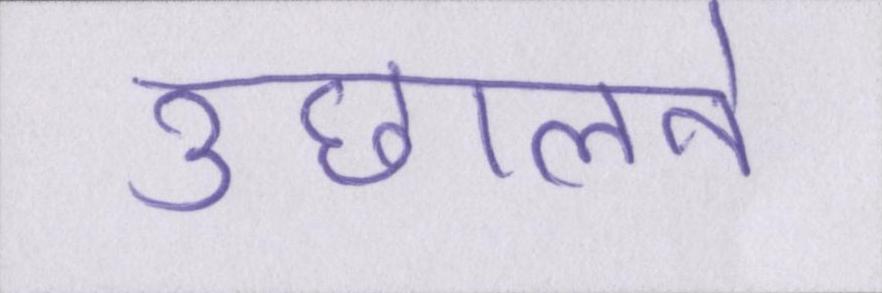 उछालने